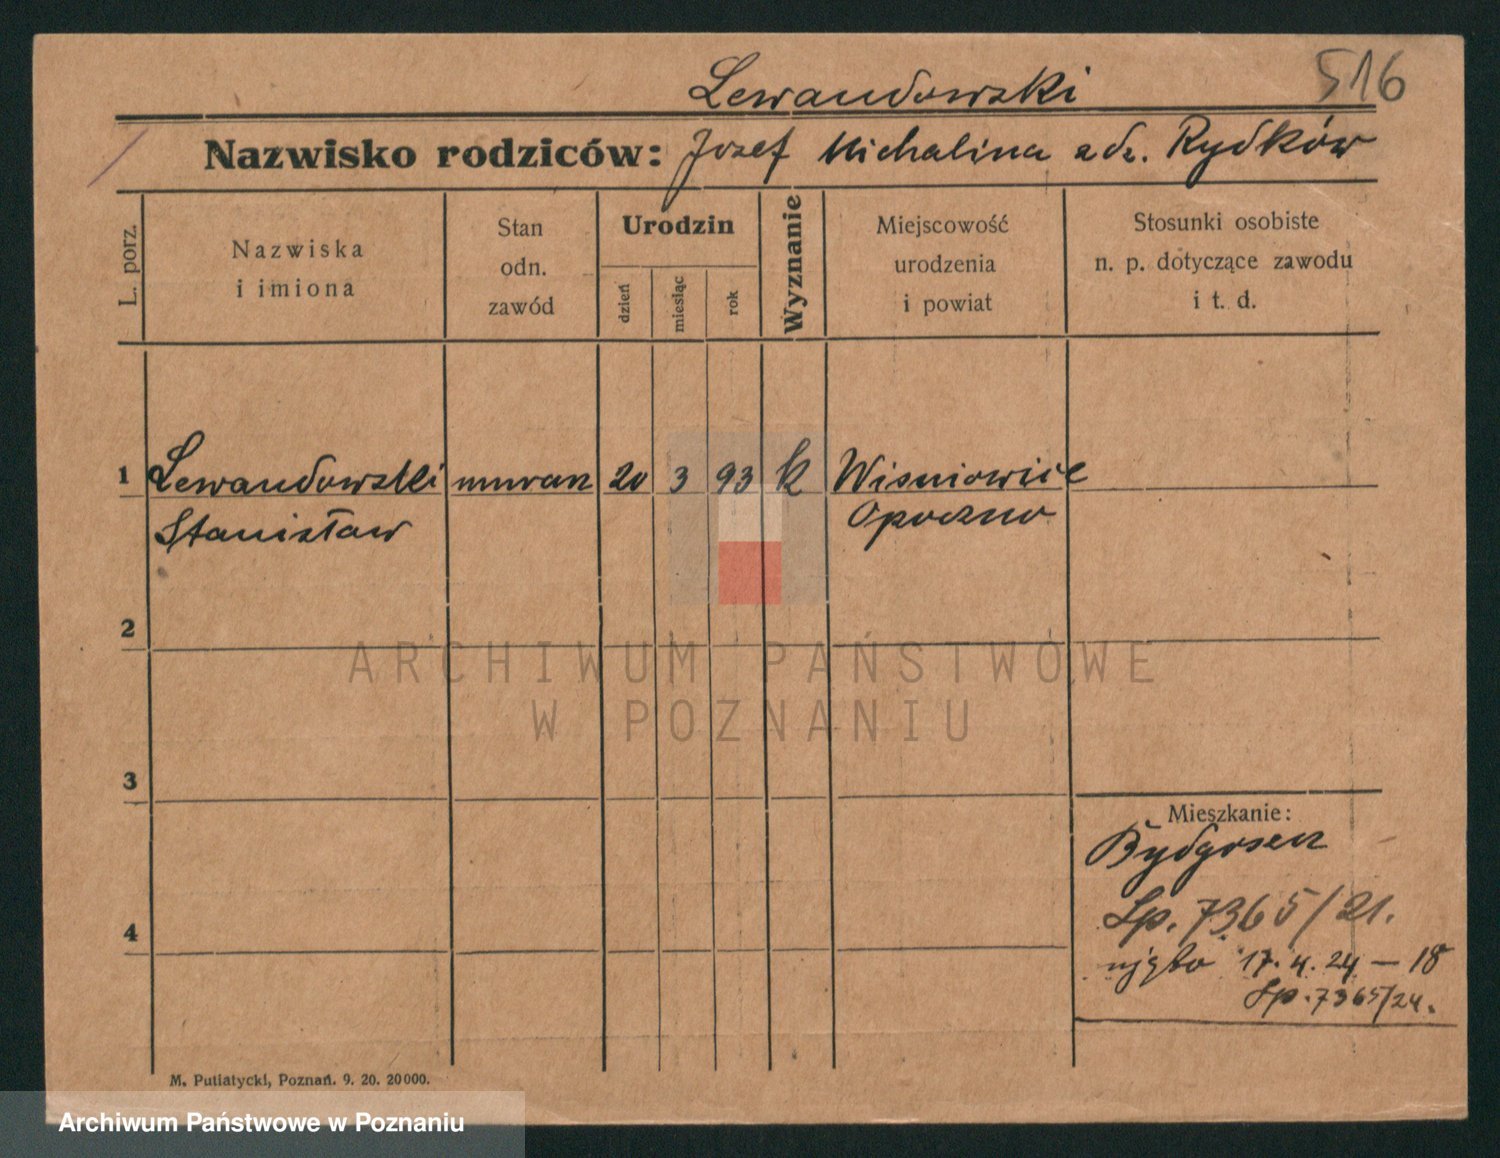 516
Lewandowski
Nazwisko rodziców: Jozef Michalina z dz. Rydków
L. porz.
Nazwiska
i imiona
Stan
odn.
zawód
Urodzin
dzień
miesiąc
rok
Wyznanie
Miejscowość
urodzenia
i powiat
Stosunki osobiste
n. p. dotyczące zawodu
i t. d.
1 Lewandowski murarz 20 3 93 k Wisniowice
Stanisław Opoczno
2
ARCHIWUM PAŃSTWOWE
W POZNANIU
3
Mieszkanie:
Bydgoszcz
Lp. 7365/21.
4
ujęto 17.4.24 – 18
Lp. 7365/24.
M. Putiatycki, Poznań. 9. 20. 20000.
Archiwum Państwowe w Poznaniu